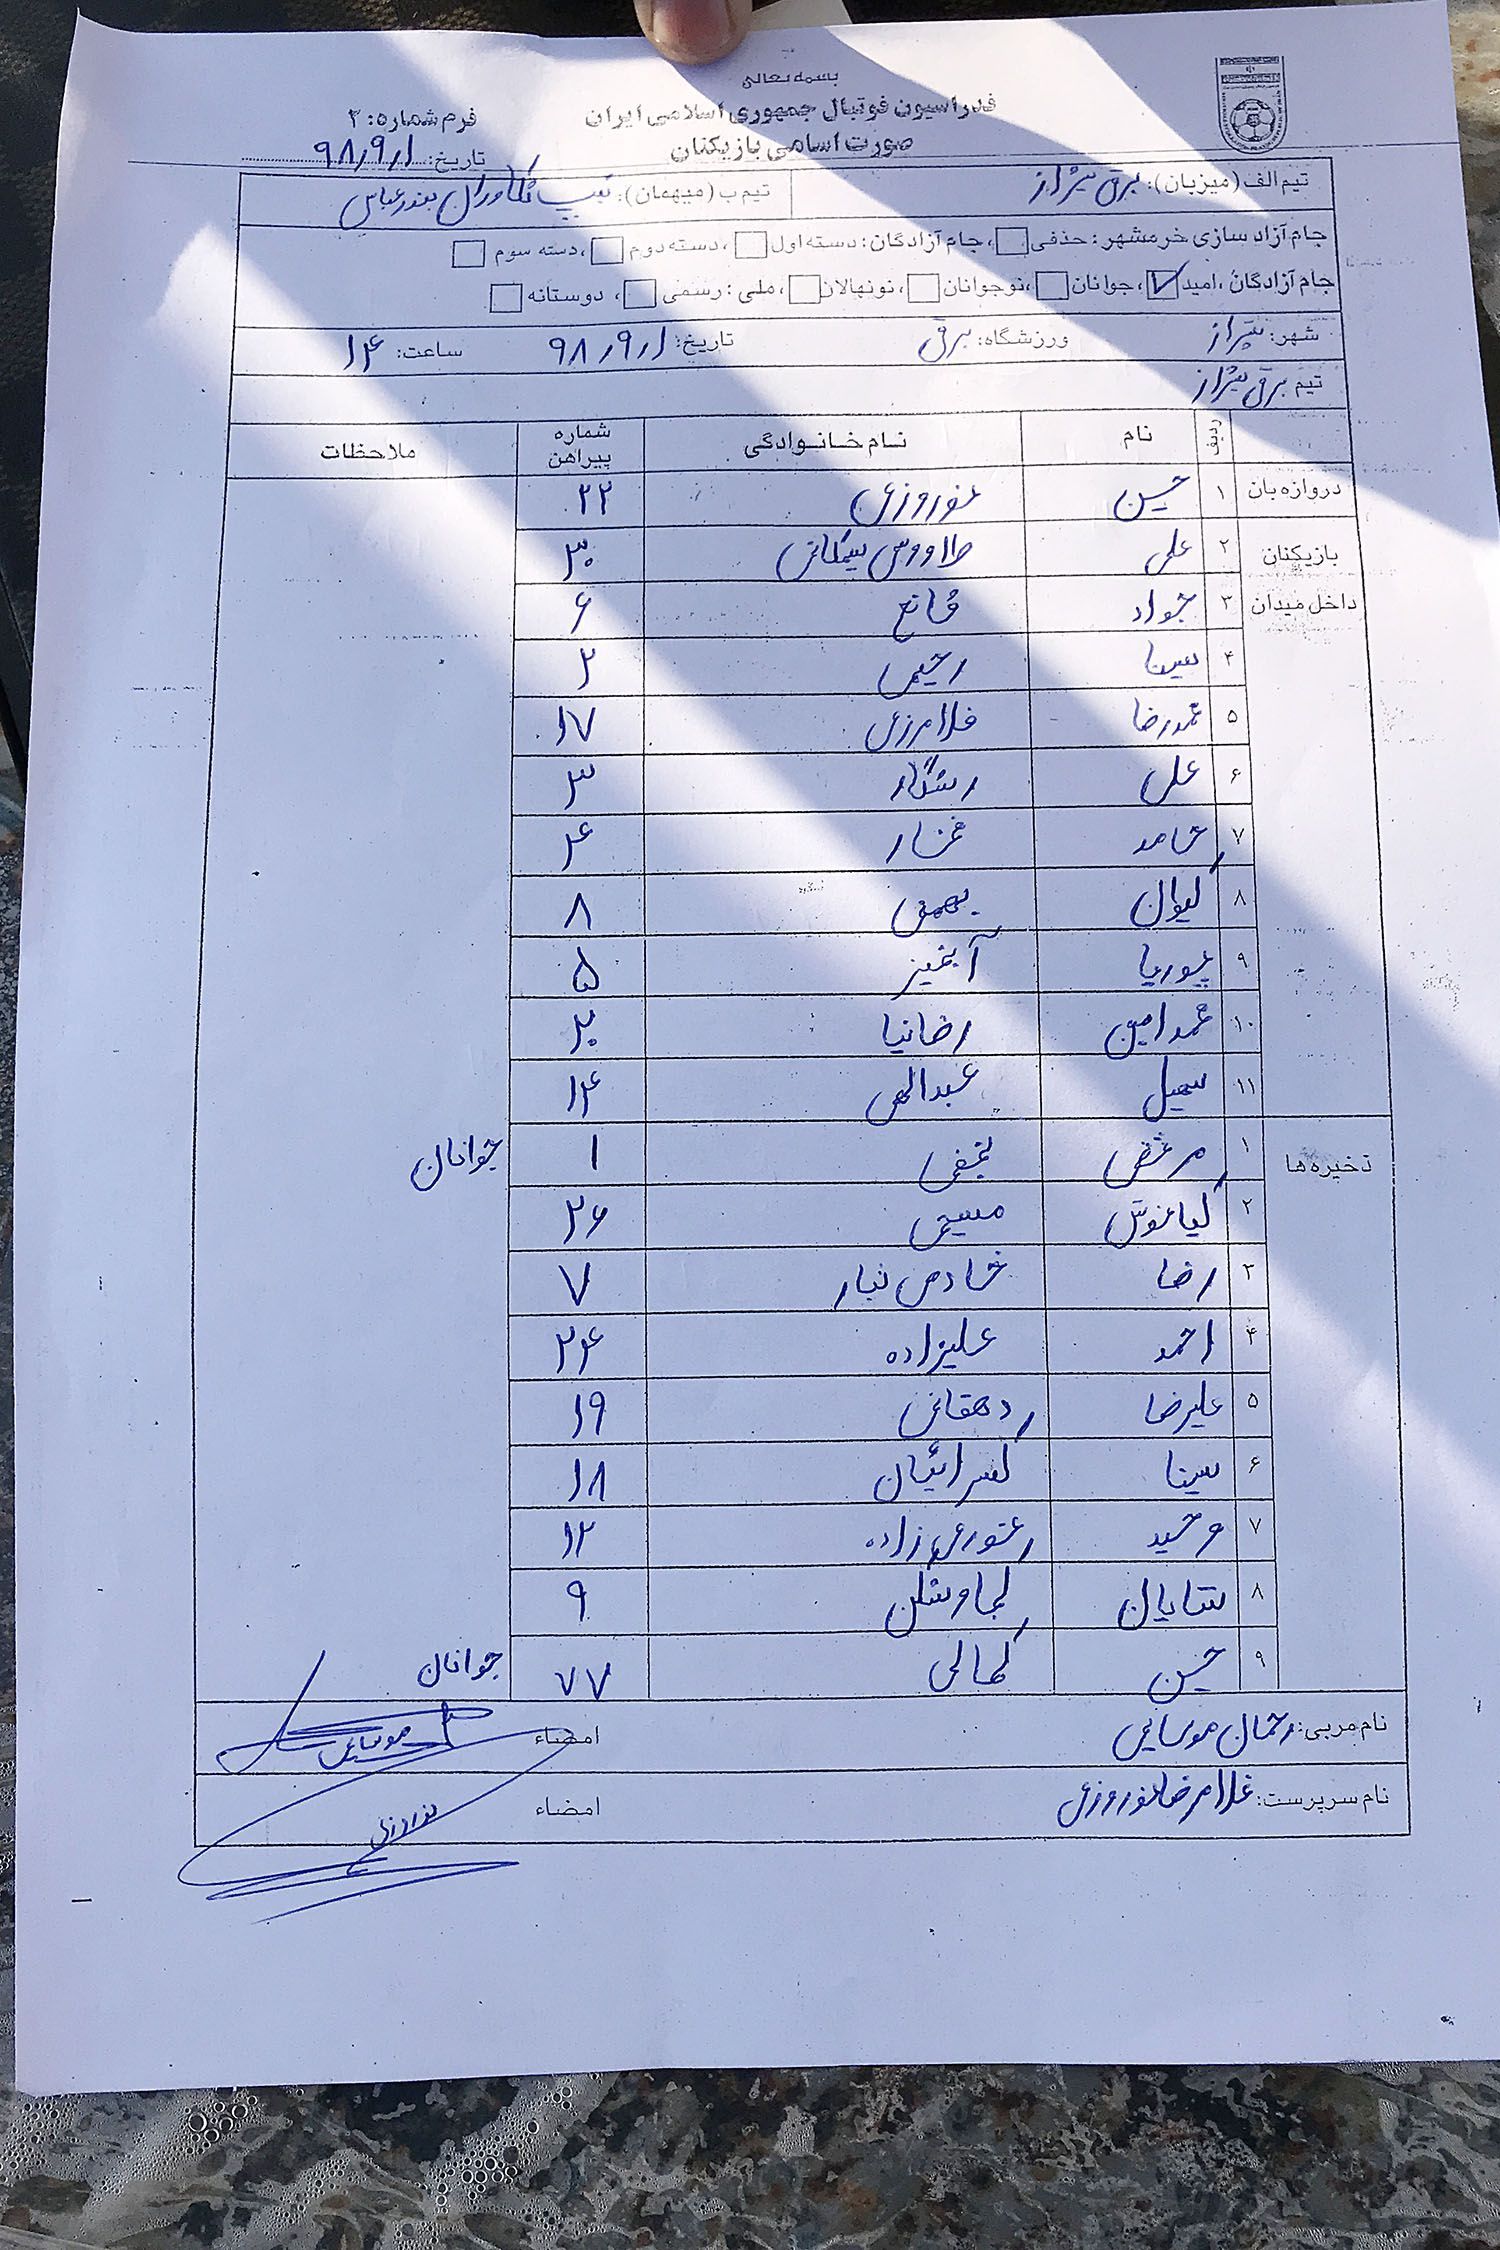 بسمه تعالی
فدراسیون فوتبال جمهوری اسلامی ایران
فرم شماره: ۲
صورت اسامی بازیکنان
تاریخ: ۹۸٫۹٫۱
تیم الف (میزبان): برق شیراز تیم ب (میهمان): تیپ تکاوران بندرعباس
جام آزاد سازی خرمشهر: حذفی ، جام آزادگان: دسته اول ، دسته دوم ، دسته سوم
جام آزادگان ، امید ، جوانان ، نوجوانان ، نونهالان ، ملی: رسمی ، دوستانه
شهر: شیراز ورزشگاه: برق تاریخ: ۹۸٫۹٫۱ ساعت: ۱۴
تیم برق شیراز
ردیف نام نام خانوادگی شماره پیراهن ملاحظات
دروازه بان ۱ حسین نوروزی ۲۲
بازیکنان ۲ علی طاووسی سیمکانی ۳۰
داخل میدان ۳ جواد قانع ۶
۴ سینا رحیمی ۲
۵ محمدرضا غلامرزی ۱۷
۶ علی رستگار ۳
۷ حامد ۴
۸ کیوان بهمنی ۸
۹ پوریا آبخیز ۵
۱۰ محمدامین رضانیا ۲۰
۱۱ سهیل عبدالهی ۱۴
ذخیره ها ۱ مرتضی نجفی ۱ جوانان
۲ کیانوش مسیحی ۲۶
۳ رضا خادمی تبار ۷
۴ احمد علیزاده ۲۴
۵ علیرضا دهقانی ۱۹
۶ سینا کسرائیان ۱۸
۷ وحید ۱۲
۸ شایان ۹
۹ حسن کمالی ۷۷ جوانان
نام مربی: رحمان موسایی امضاء موسایی
نام سرپرست: غلامرضا نوروزی امضاء نوروزی